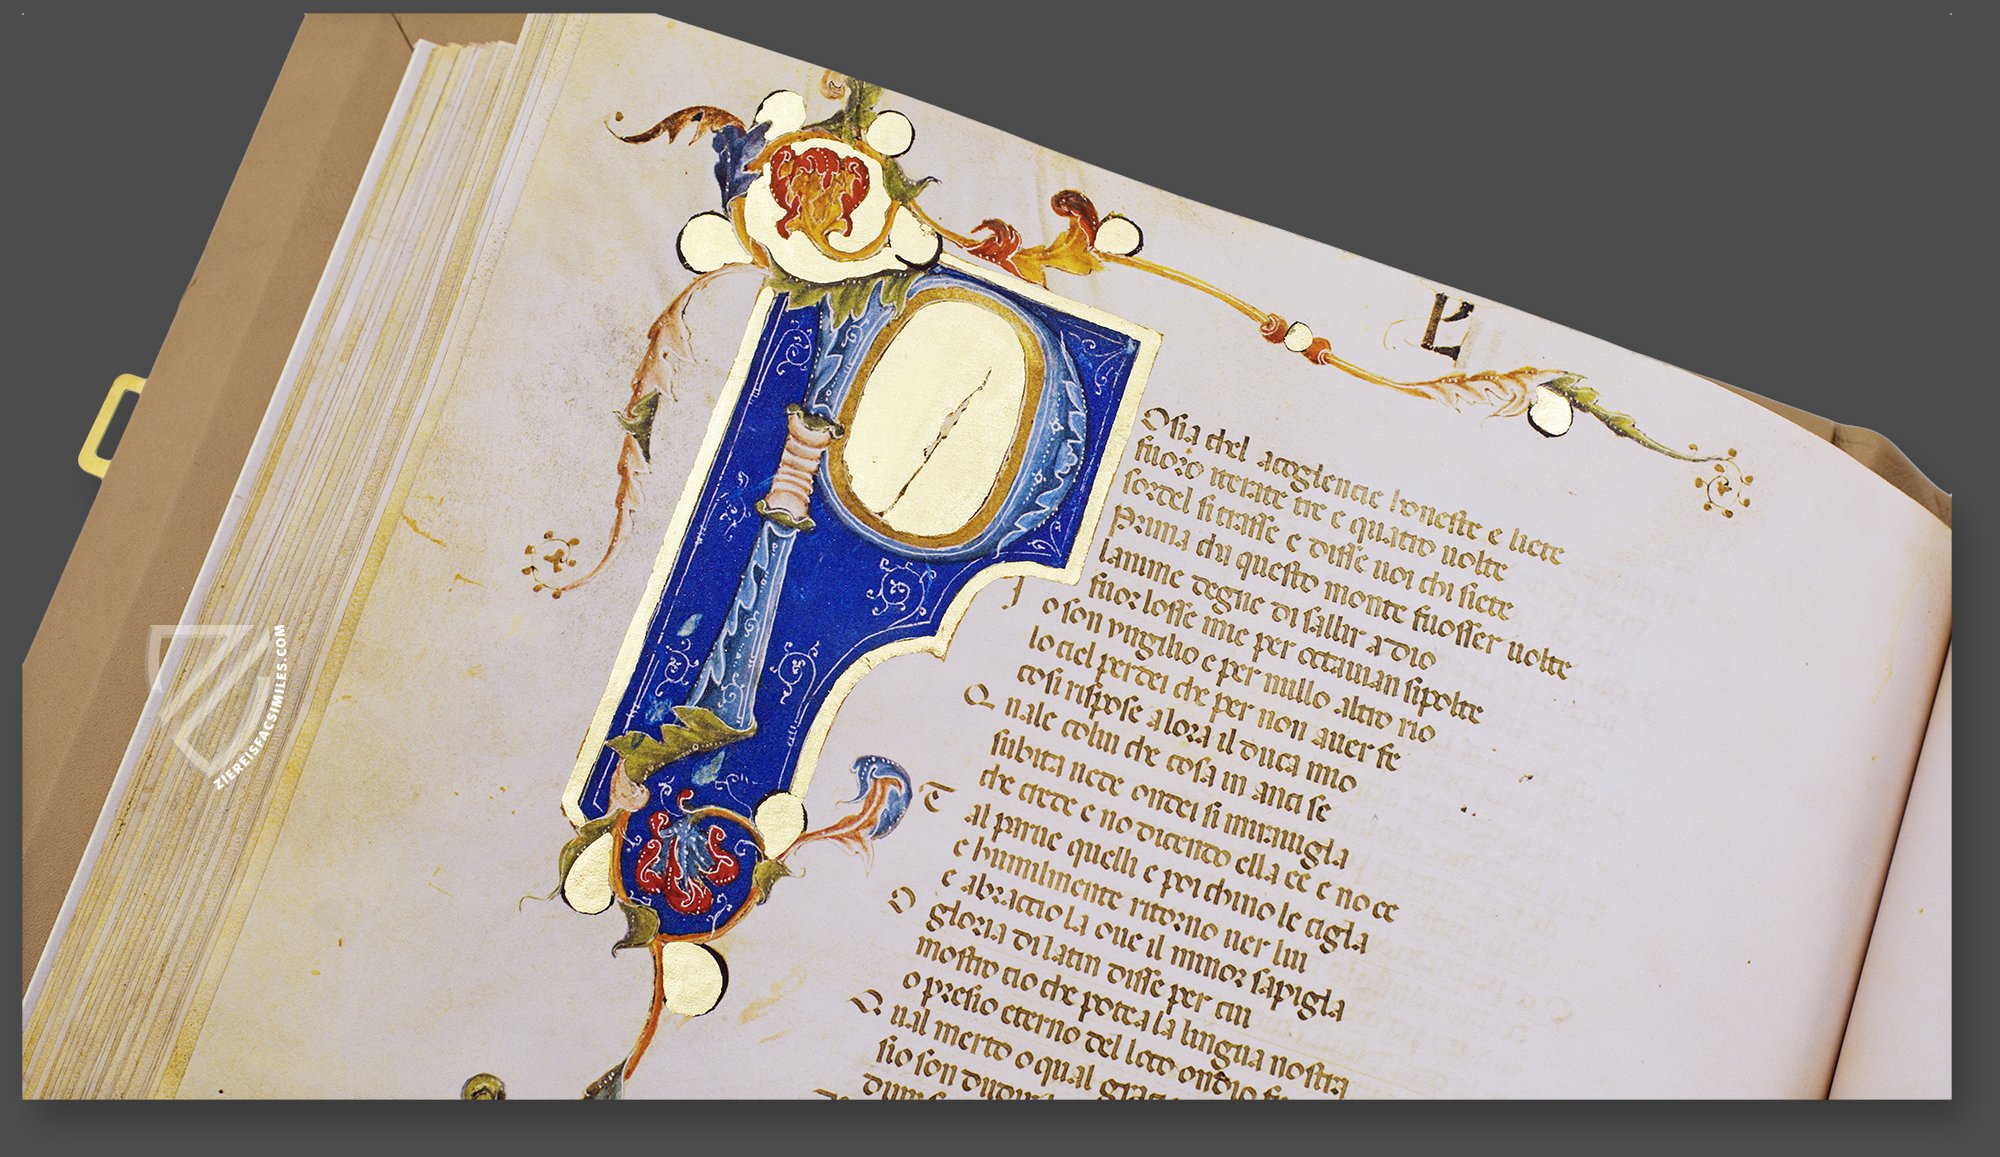 L
P
Osia chel acoglencie honeste e liete
fuoro iterate tre e quatro uolte
sordel si trasse e disse uoi chi siete
Prima chi questo monte fuosser uolte
lanime degne di sallir a dio
fuor losse mie per octauian sipolte
I o son virgilio e per nullo altro rio
lo ciel perdei che per non auer fe
cosi rispose alora il duca mio
Quale colui che cosa in anci se
subita uede ondei si mirauigla
che crede e no dicendo ella ee e no ee
T al parue quelli e poi chino le cigla
e humilmente ritorno uer lui
e abraccio la oue il minor sapigla
O gloria di latin disse per cui
mostro cio che potea la lingua nostra
o presio eterno del loco ondio fu
Qual merto o qual gra
sio son dudir
ZIEREISFACSIMILES.COM